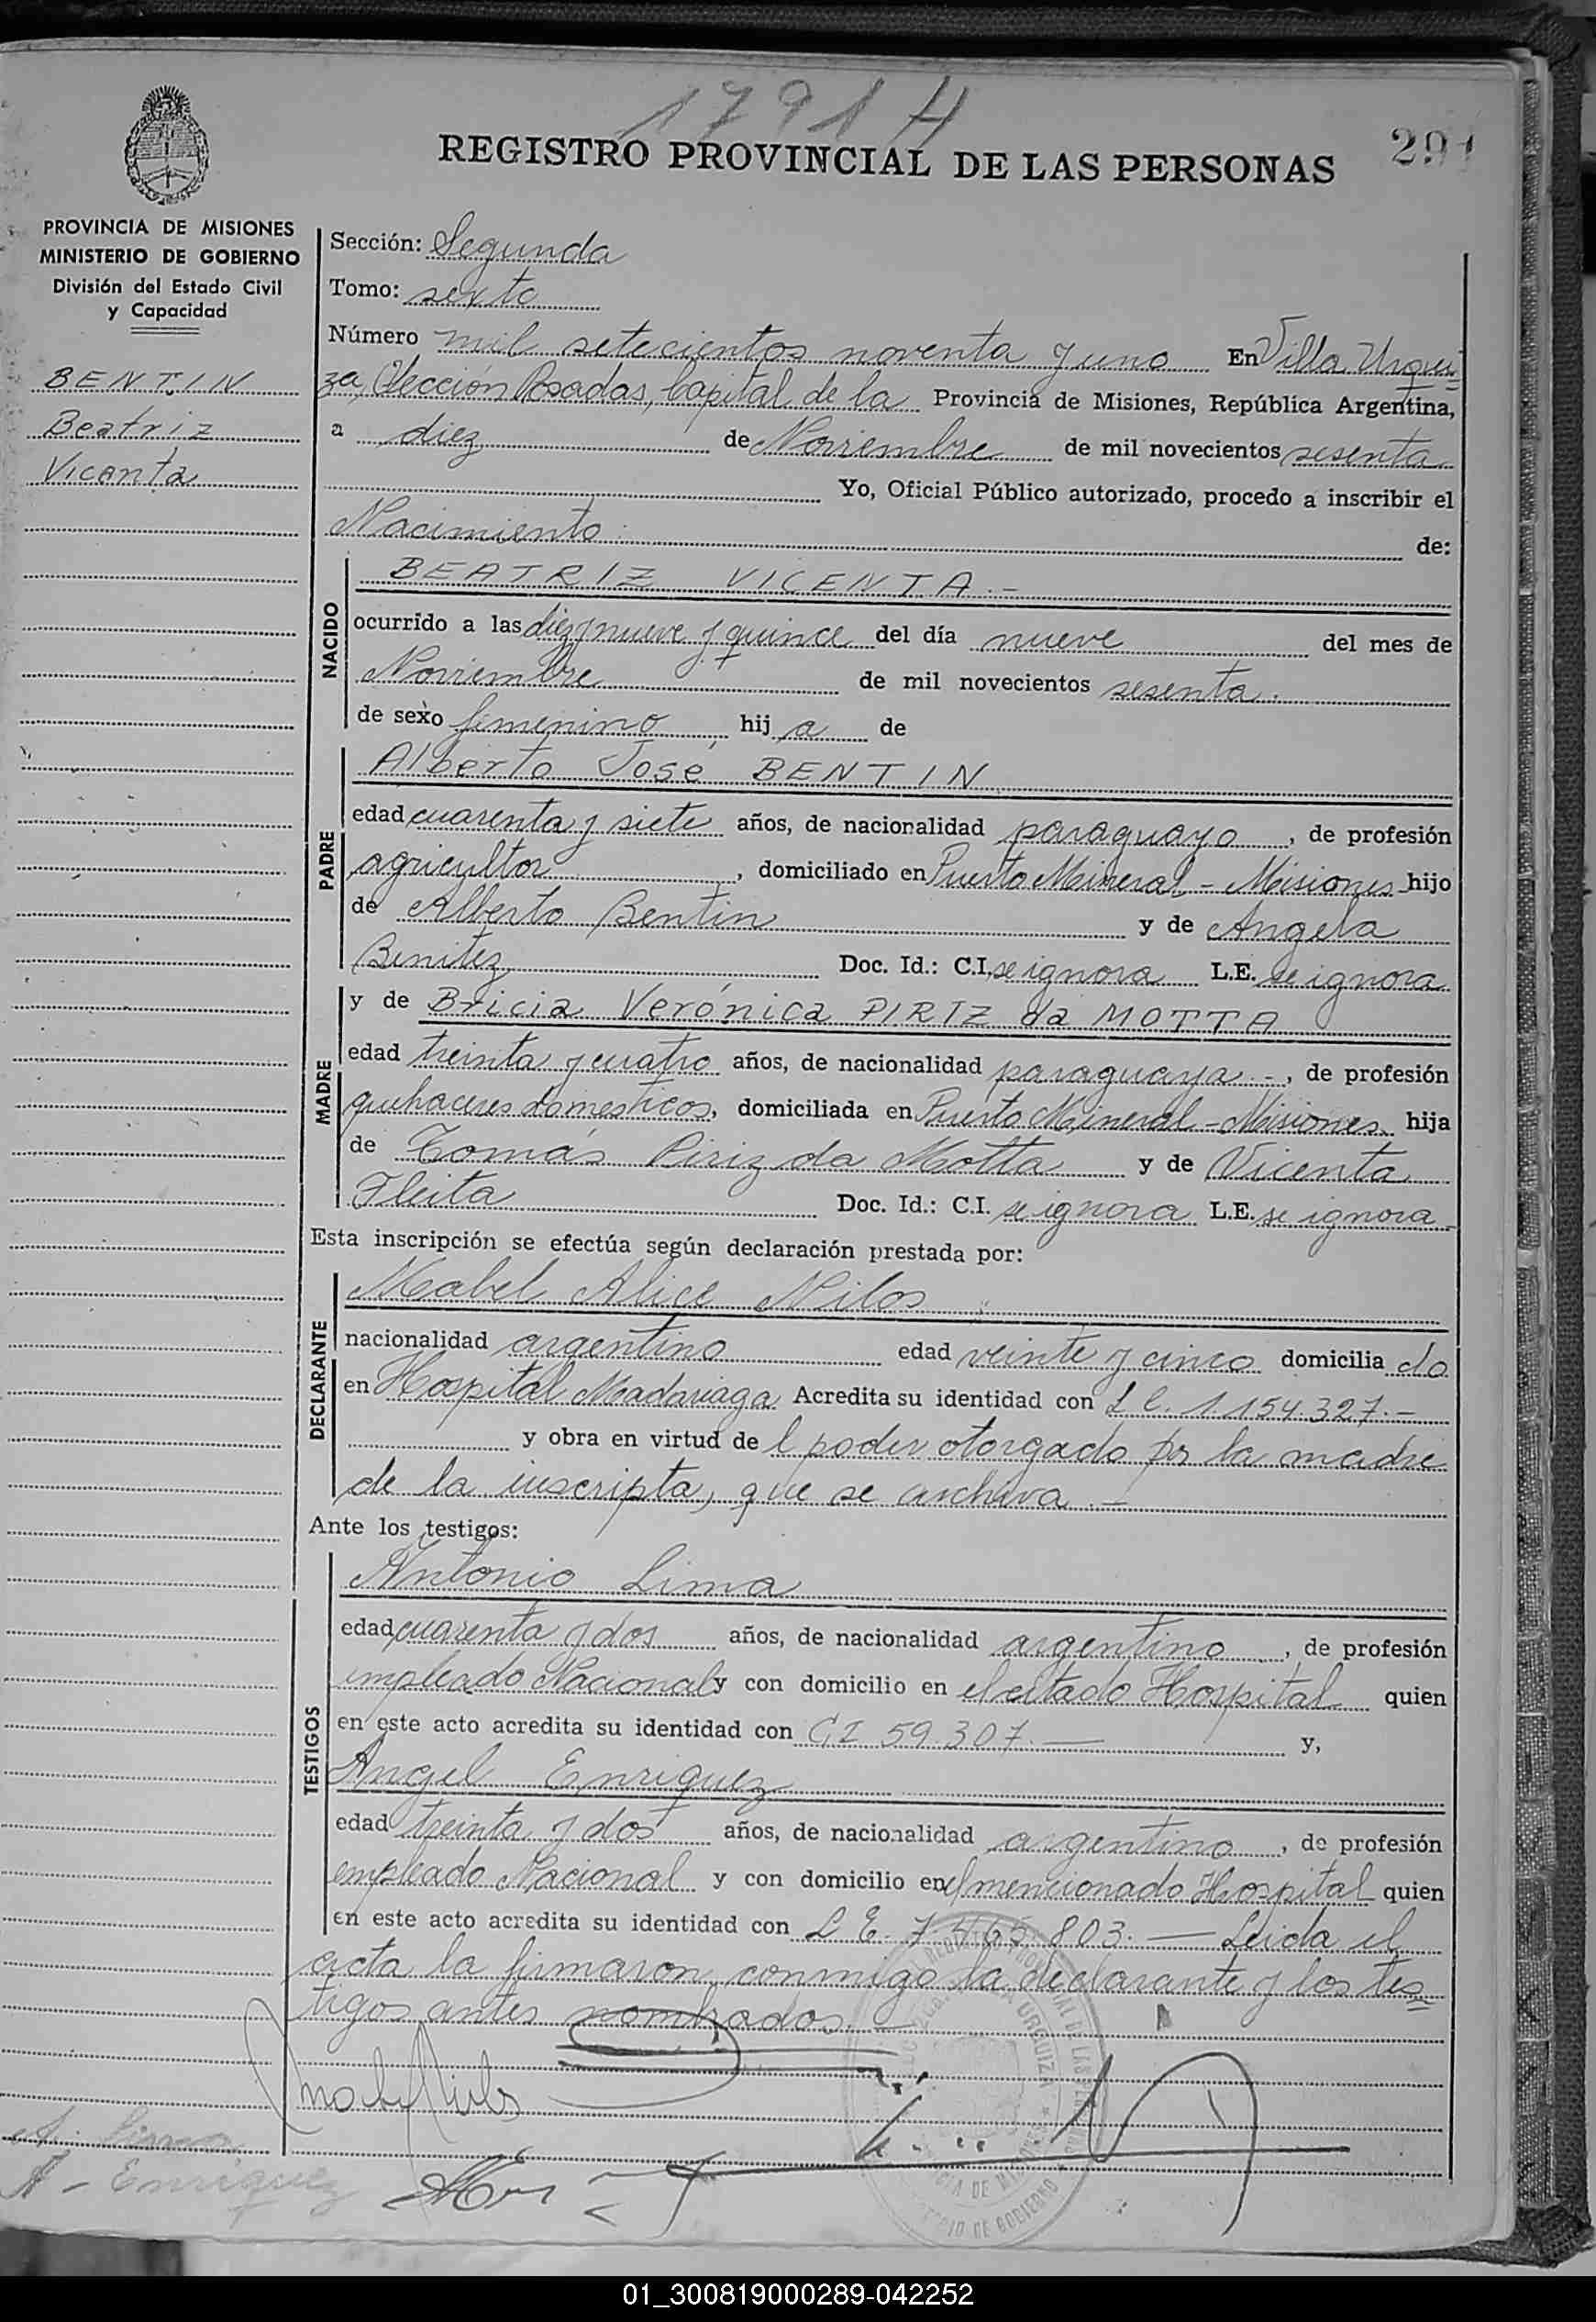 1791 H
REGISTRO PROVINCIAL DE LAS PERSONAS
291
PROVINCIA DE MISIONES
MINISTERIO DE GOBIERNO
División del Estado Civil
y Capacidad
BENTIN
Beatriz
Vicenta
Sección: Segunda
Tomo: sexto
Número mil setecientos noventa y uno En Villa Urqui=
za, Sección Posadas, Capital de la Provincia de Misiones, República Argentina,
a diez de Noviembre de mil novecientos sesenta
Yo, Oficial Público autorizado, procedo a inscribir el
Nacimiento de:
NACIDO
BEATRIZ VICENTA.-
ocurrido a las diez y nueve y quince del día nueve del mes de
Noviembre de mil novecientos sesenta.
de sexo femenino hij a de
PADRE
Alberto José BENTIN
edad cuarenta y siete años, de nacionalidad paraguayo, de profesión
agricultor, domiciliado en Puerto Mineral - Misiones hijo
de Alberto Bentin y de Angela
Benitez Doc. Id.: C.I. se ignora L.E. se ignora
MADRE
y de Bricia Verónica PIRIZ da MOTTA
edad treinta y cuatro años, de nacionalidad paraguaya.-, de profesión
quehaceres domesticos, domiciliada en Puerto Mineral - Misiones, hija
de Tomás Piriz da Motta y de Vicenta
Fleita Doc. Id.: C.I. se ignora L.E. se ignora.-
Esta inscripción se efectúa según declaración prestada por:
DECLARANTE
Mabel Alice Nilos
nacionalidad argentino edad veinte y cinco domicilia do
en Hospital Madariaga Acredita su identidad con L C. 1.154.327.-
y obra en virtud de l poder otorgado por la madre
de la inscripta, que se archiva.-
Ante los testigos:
TESTIGOS
Antonio Lima
edad cuarenta y dos años, de nacionalidad argentino, de profesión
empleado Nacional y con domicilio en el citado Hospital quien
en este acto acredita su identidad con C.I 59.307.— y,
Angel Enriquez
edad treinta y dos años, de nacionalidad argentino, de profesión
empleado Nacional y con domicilio en el mencionado Hospital quien
en este acto acredita su identidad con L E. 7.465.803.— Leida el
acta la firmaron conmigo la declarante y los tes=
tigos antes nombrados.—
A. Lima
A - Enriquez
01_300819000289-042252